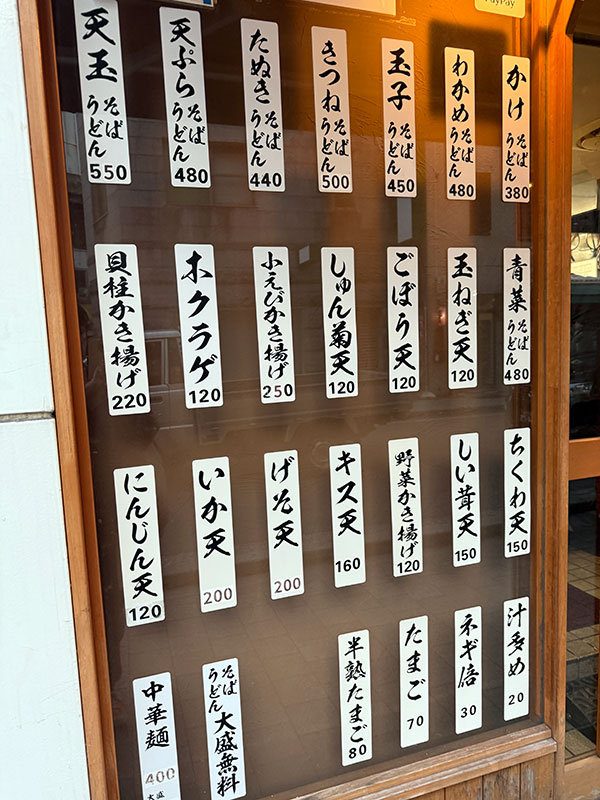 PayPay
かけ そば うどん 380
わかめ そば うどん 480
玉子 そば うどん 450
きつね そば うどん 500
たぬき そば うどん 440
天ぷら そば うどん 480
天玉 そば うどん 550
青菜 そば うどん 480
玉ねぎ天 120
ごぼう天 120
しゅん菊天 120
小えびかき揚げ 250
ホクラゲ 120
貝柱かき揚げ 220
ちくわ天 150
しい茸天 150
野菜かき揚げ 120
キス天 160
げそ天 200
いか天 200
にんじん天 120
汁多め 20
ネギ倍 30
たまご 70
半熟たまご 80
そば うどん 大盛無料
中華麺 400
大盛